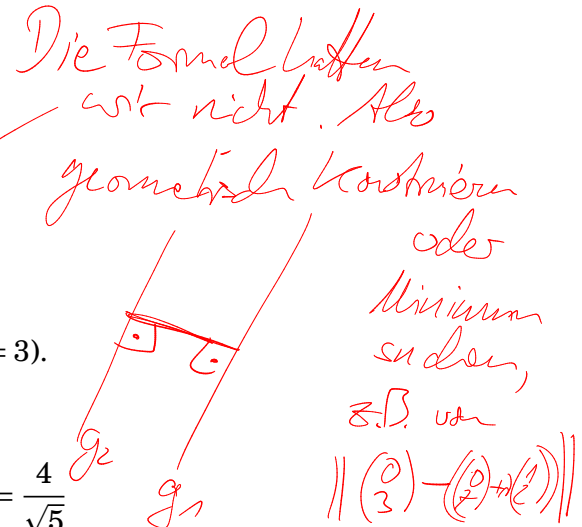 Die Formel hatten
wir nicht. Also
geometrisch konstruieren
oder
Minimum
suchen,
= 3).
z.B. von
g₂
= 4/√5
g₁
‖(0 3) - ((0 7) + λ(1 2))‖